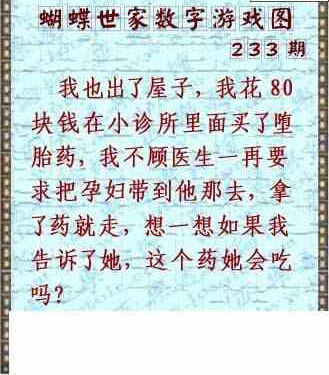 蝴蝶世家数字游戏图
233期
我也出了屋子，我花80
块钱在小诊所里面买了堕
胎药，我不顾医生一再要
求把孕妇带到他那去，拿
了药就走，想一想如果我
告诉了她，这个药她会吃
吗？